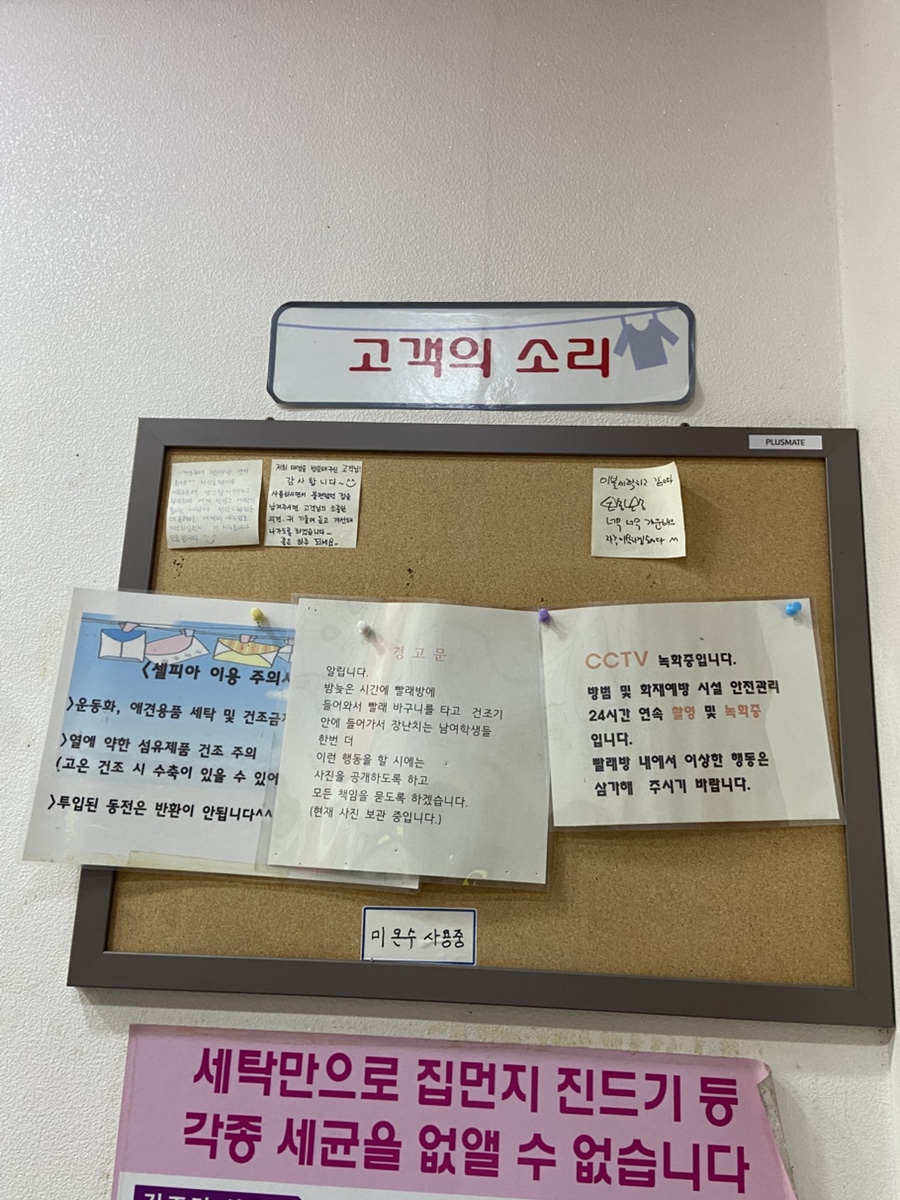 고객의 소리
PLUSMATE
저희 매장을 방문해주신 고객님!
감사합니다~
사용하시면서 불편했던 점을
남겨주시면 고객님의 소중한
의견, 귀 기울여 듣고 개선해
나가도록 하겠습니다~
좋은 하루 되세요~
너무 너무
<셀피아 이용 주의사
>운동화, 애견용품 세탁 및 건조금지
>열에 약한 섬유제품 건조 주의
(고온 건조 시 수축이 있을 수 있어
>투입된 동전은 반환이 안됩니다^^
경고문
알립니다.
밤늦은 시간에 빨래방에
들어와서 빨래 바구니를 타고 건조기
안에 들어가서 장난치는 남여학생들
한번 더
이런 행동을 할 시에는
사진을 공개하도록 하고
모든 책임을 묻도록 하겠습니다.
(현재 사진 보관 중입니다.)
CCTV 녹화중입니다.
방범 및 화재예방 시설 안전관리
24시간 연속 촬영 및 녹화중
입니다.
빨래방 내에서 이상한 행동은
삼가해 주시기 바랍니다.
미온수 사용중
세탁만으로 집먼지 진드기 등
각종 세균을 없앨 수 없습니다